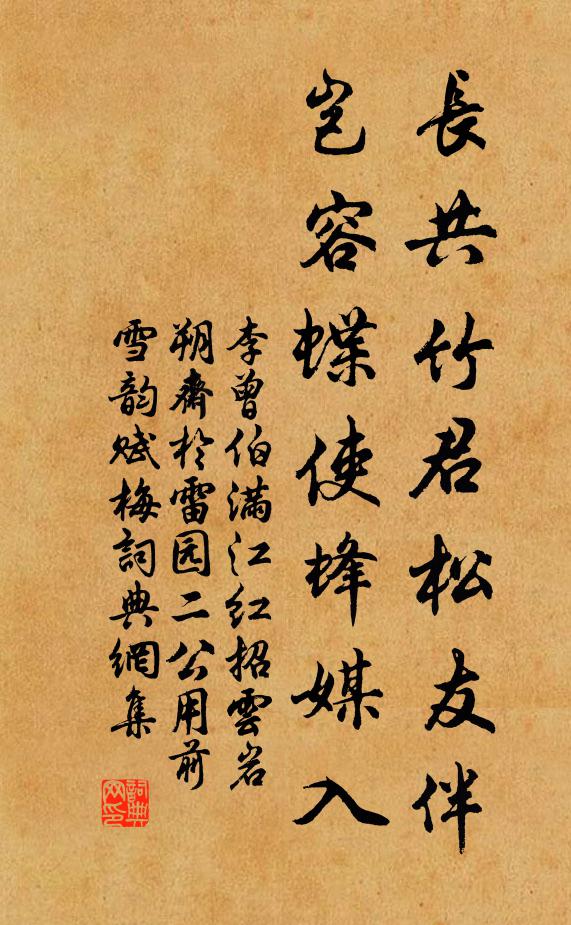 長共竹君松友伴
岂容蝶使蜂媒入
李曾伯满江红招雲岩
朔齋於雷园二公用前
雪韵赋梅詞典網集
詞典网印